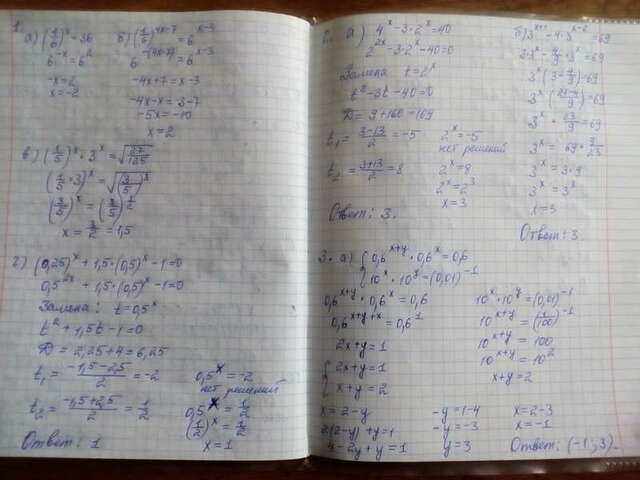 1.
а) (1/6)^x = 36
6^-x = 6^2
-x = 2
x = -2
б) (1/6)^4x-7 = 6^x-3
6^-(4x-7) = 6^x-3
-4x+7 = x-3
-4x-x = -3-7
-5x = -10
x = 2
в) (1/5)^x · 3^x = √27/125
(1/5 · 3)^x = √(3/5)^3
(3/5)^x = (3/5)^3/2
x = 3/2 = 1,5
г) (0,25)^x + 1,5·(0,5)^x - 1 = 0
0,5^2x + 1,5·(0,5)^x - 1 = 0
Замена: t = 0,5^x
t^2 + 1,5t - 1 = 0
D = 2,25 + 4 = 6,25
t1 = -1,5-2,5/2 = -2
0,5^x = -2
нет решений
t2 = -1,5+2,5/2 = 1/2
0,5^x = 1/2
(1/2)^x = 1/2
x = 1
Ответ: 1
2. а) 4^x - 3·2^x = 40
2^2x - 3·2^x - 40 = 0
Замена t = 2^x
t^2 - 3t - 40 = 0
D = 9 + 160 = 169
t1 = 3-13/2 = -5
2^x = -5
нет решений
t2 = 3+13/2 = 8
2^x = 8
2^x = 2^3
x = 3
Ответ: 3.
б) 3^x+1 - 4·3^x-2 = 69
3·3^x - 4/9 · 3^x = 69
3^x (3 - 4/9) = 69
3^x (27-4/9) = 69
3^x · 23/9 = 69
3^x = 69 · 9/23
3^x = 3·9
3^x = 3^3
x = 3
Ответ: 3
3. а) { 0,6^x+y · 0,6^x = 0,6
10^x · 10^y = (0,01)^-1
0,6^x+y · 0,6^x = 0,6
0,6^x+y+x = 0,6^1
2x+y = 1
10^x · 10^y = (0,01)^-1
10^x+y = (1/100)^-1
10^x+y = 100
10^x+y = 10^2
x+y = 2
{ 2x+y = 1
x+y = 2
x = 2-y
2(2-y)+y = 1
4-2y+y = 1
-y = 1-4
-y = -3
y = 3
x = 2-3
x = -1
Ответ: (-1; 3).